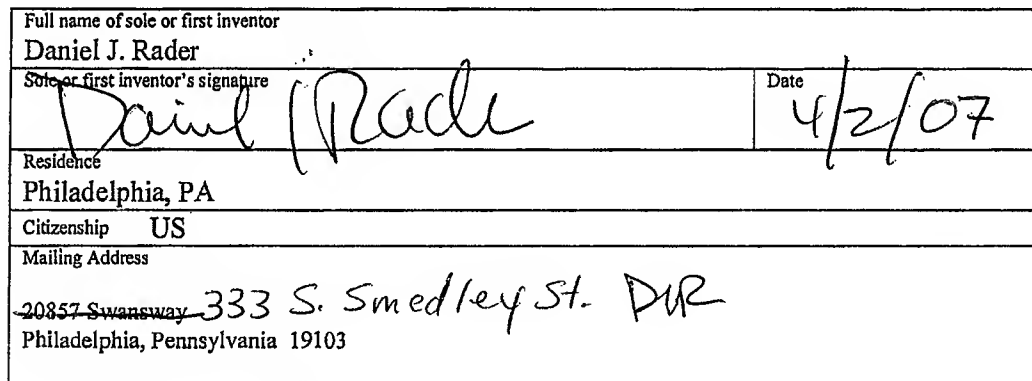 Full name of sole or first inventor
Daniel J. Rader
Sole or first inventor's signature
Daniel J Rader
Date
4/2/07
Residence
Philadelphia, PA
Citizenship US
Mailing Address
20857 Swansway 333 S. Smedley St. DJR
Philadelphia, Pennsylvania 19103